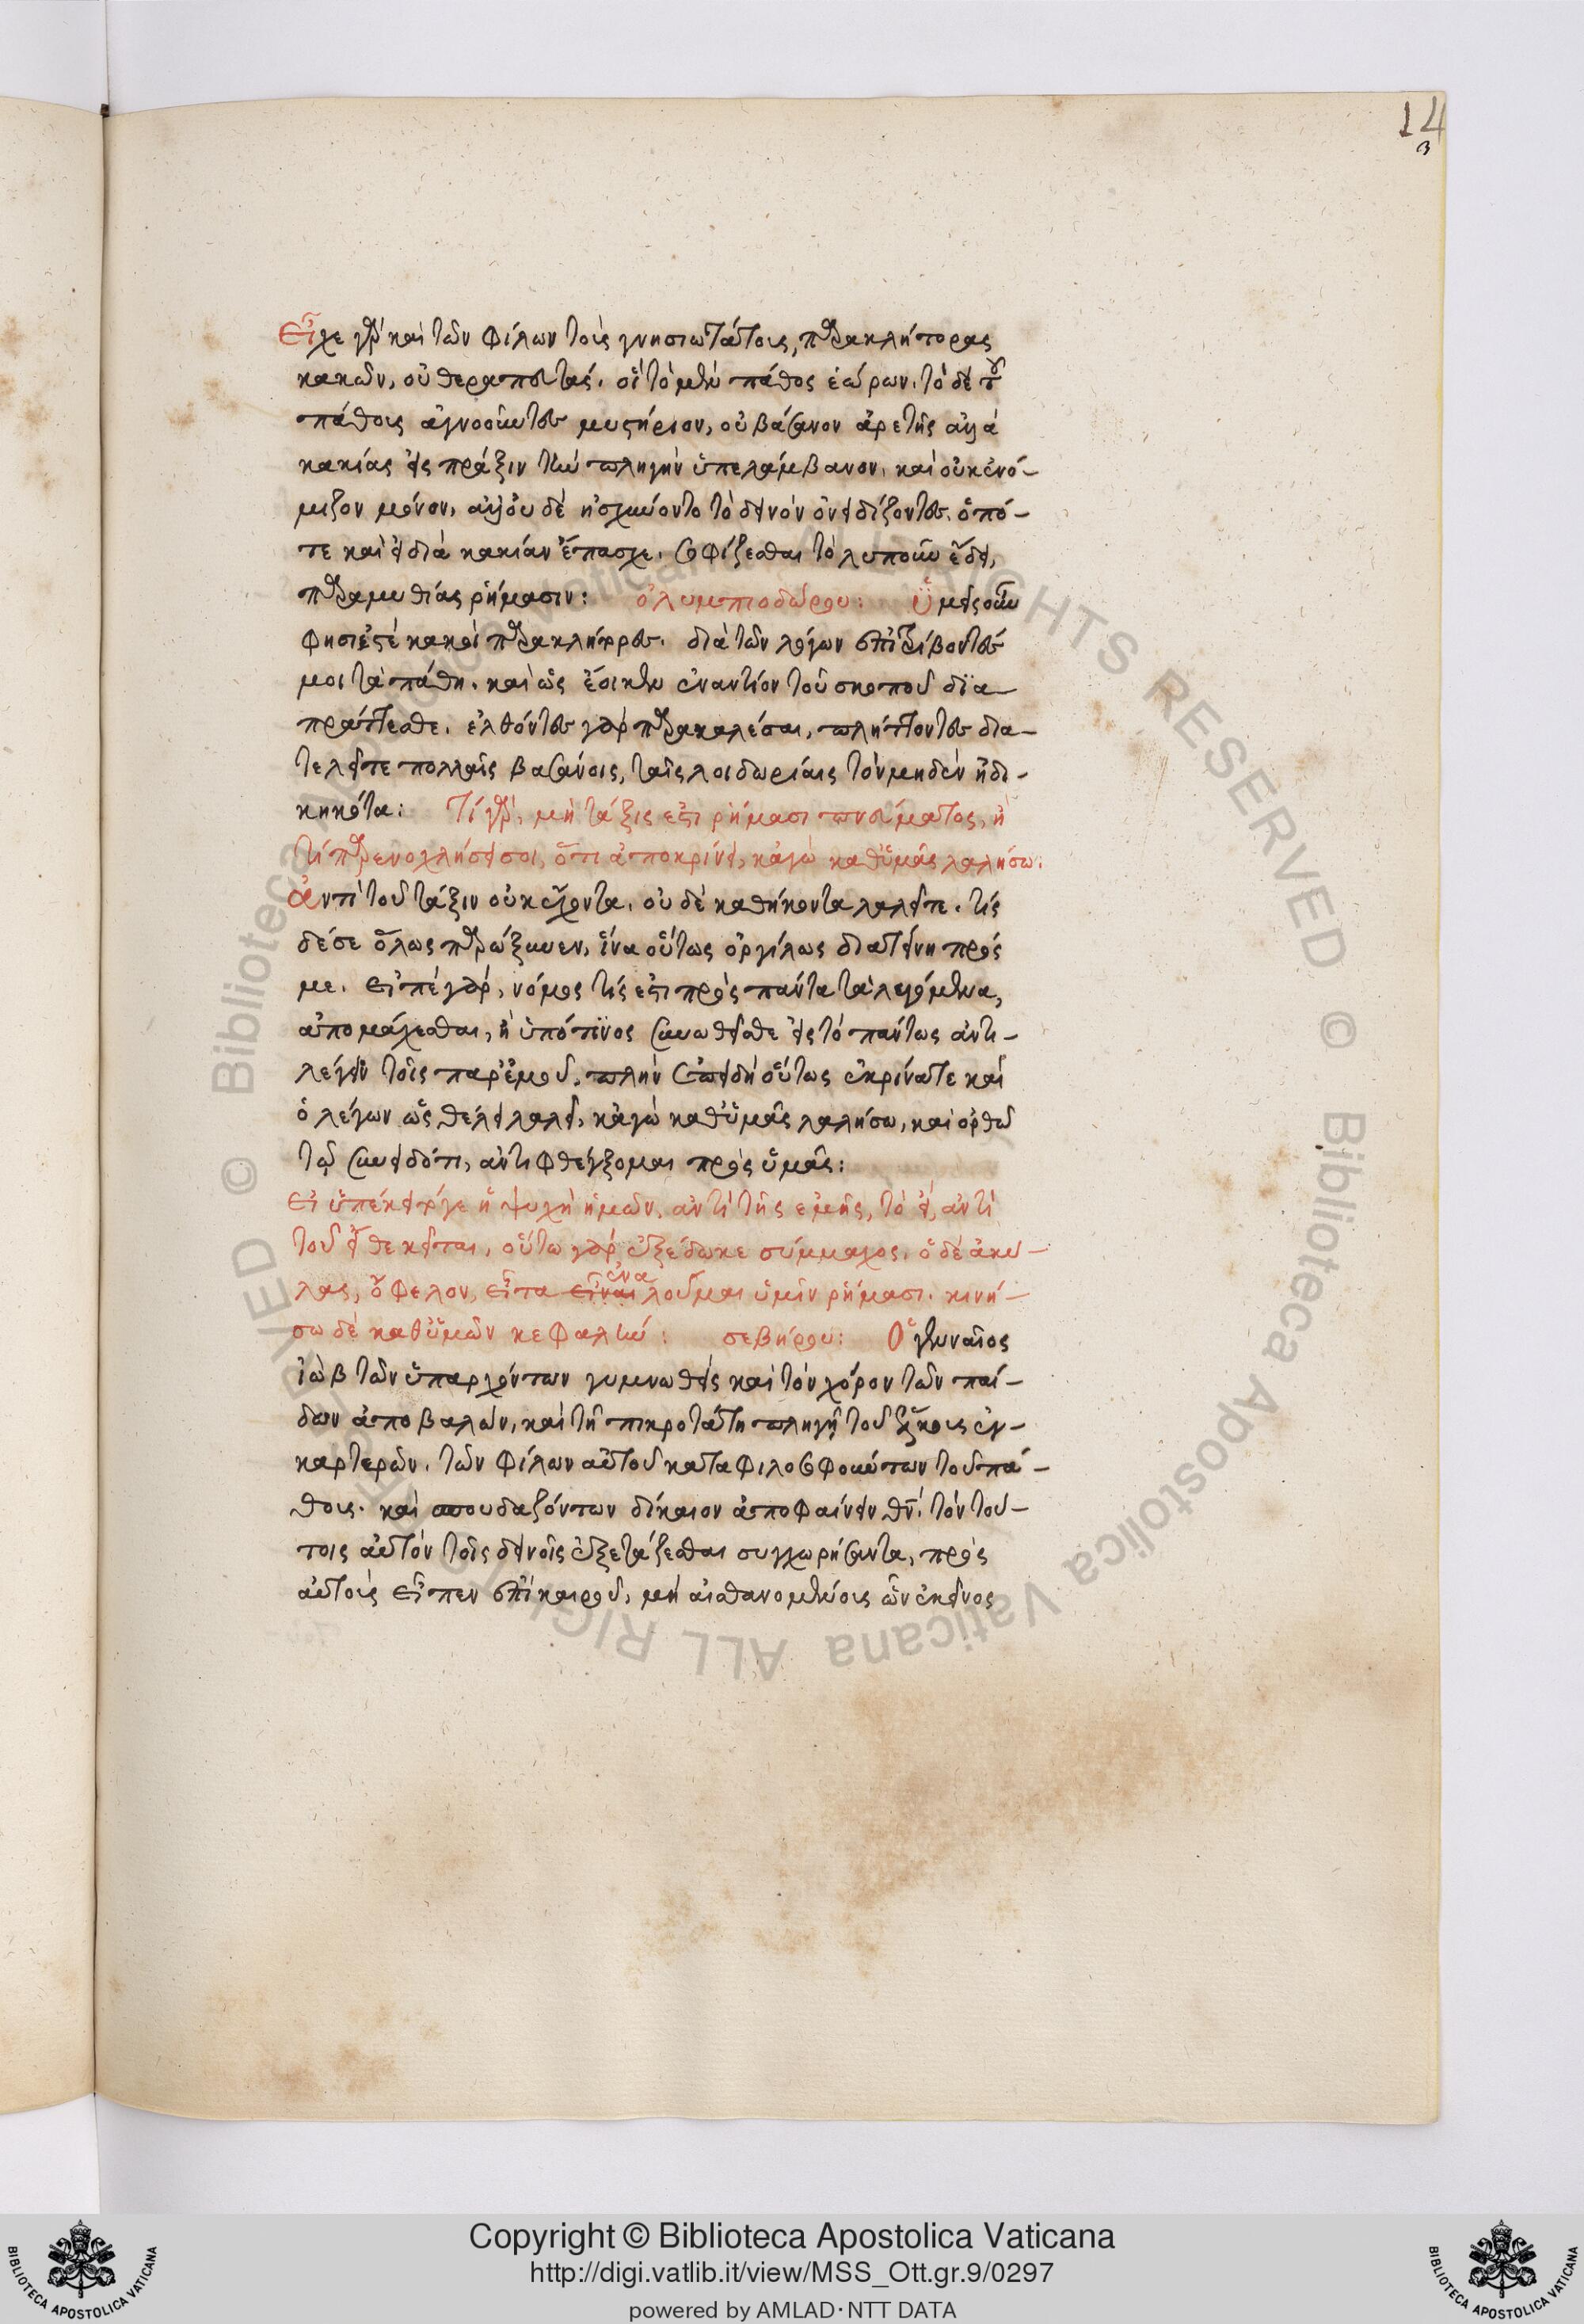 14
3
Εἶχε γὰρ καὶ τῶν φίλων τοὺς γνησιωτάτους, παρακλήτορας
κακῶν, οὐ θεραπευτάς. οἳ τὸ μὲν πάθος ἑώρων. τὸ δὲ τοῦ
πάθους ἀγνοοῦντες μυστήριον, οὐ βάσανον ἀρετῆς ἀλλὰ
κακίας εἰς πρᾶξιν τὴν πληγὴν ὑπελάμβανον. καὶ οὐκ ἐνό-
μιζον μόνον, ἀλλ' οὐδὲ ἠσχύοντο τὸ δεινὸν ὀνειδίζοντες. ὁπό-
τε καὶ εἰ διὰ κακίαν ἔπασχε. σοφίζεσθαι τὸ λυποῦν ἔδει,
παραμυθίας ῥήμασιν: ὀλυμπιοδώρου: Ὑμεῖς οὖν
φησὶ ἐστὲ κακοὶ παρακλήτορες. διὰ τῶν λόγων ἐπιτρίβοντές
μοι τὰ πάθη. καὶ ὡς ἔοικεν ἐναντίον τοῦ σκοποῦ δια-
πράττεσθε. ἐλθόντες γὰρ παρακαλέσαι, πλήττοντες δια-
τελεῖτε πολλαῖς βασάνοις, ταῖς λοιδωρίαις τὸν μηδὲν ἠδι-
κηκότα: Τί γὰρ, μὴ τάξις ἐστὶ ῥήμασι πνεύματος, ἢ
τί παρενοχλήσει σοι, ὅτι ἀποκρίνει, κἀγὼ καθ' ὑμᾶς λαλήσω:
ἀντὶ τοῦ τάξιν οὐκ ἔχοντα. οὐδὲ καθήκοντα λαλεῖτε. τίς
δέ σε ὅλως παρώξυνεν, ἵνα οὕτως ὀργίλως διατείνῃ πρός
με. εἰπὲ γὰρ, νόμος τίς ἐστι πρὸς πάντα τὰ λεγόμενα,
ἀπομάχεσθαι, ἢ ὑπό τινος συνωθεῖσθε εἰς τὸ πάντως ἀντι-
λέγειν τοῖς παρ' ἐμοῦ. πλὴν ἐπειδὴ οὕτως ἐκρίνατε καὶ
ὁ λέγων ὡς θέλει λαλεῖ, κἀγὼ καθ' ὑμᾶς λαλήσω, καὶ ὀρθῶ
τῷ συνειδότι, ἀντιφθέγξομαι πρὸς ὑμᾶς:
εἰ ὑπέκειτό γε ἡ ψυχὴ ἡμῶν. ἀντὶ τῆς ἐμῆς, τὸ εἰ, ἀντὶ
τοῦ εἴθε κεῖται, οὕτω γὰρ ἐξέδωκε σύμμαχος. ὁ δὲ ἀκύ-
λας, ὄφελον, εἶτα εἶναι ἐνα λοῦμαι ὑμῖν ῥήμασι. κινή-
σω δὲ καθ' ὑμῶν κεφαλήν: σεβήρου: Ὁ γενναῖος
ἰὼβ τῶν ὑπαρχόντων γυμνωθεὶς καὶ τὸν χόρον τῶν παί-
δων ἀποβαλὼν, καὶ τῇ πικροτάτῃ πληγῇ τοῦ ἕλκους ἐγ-
καρτερῶν. τῶν φίλων αὐτοῦ καταφιλοσοφούντων τοῦ πά-
θους. καὶ σπουδαζόντων δίκαιον ἀποφαίνειν θν̄ τὸν τού-
τοις αὐτὸν τοῖς δεινοῖς ἐξετάζεσθαι συγχωρήσαντα, πρὸς
αὐτοὺς εἶπεν ἐπὶ καιροῦ, μὴ αἰσθανομένους ὧν ἐκεῖνος
Copyright © Biblioteca Apostolica Vaticana
http://digi.vatlib.it/view/MSS_Ott.gr.9/0297
powered by AMLAD·NTT DATA